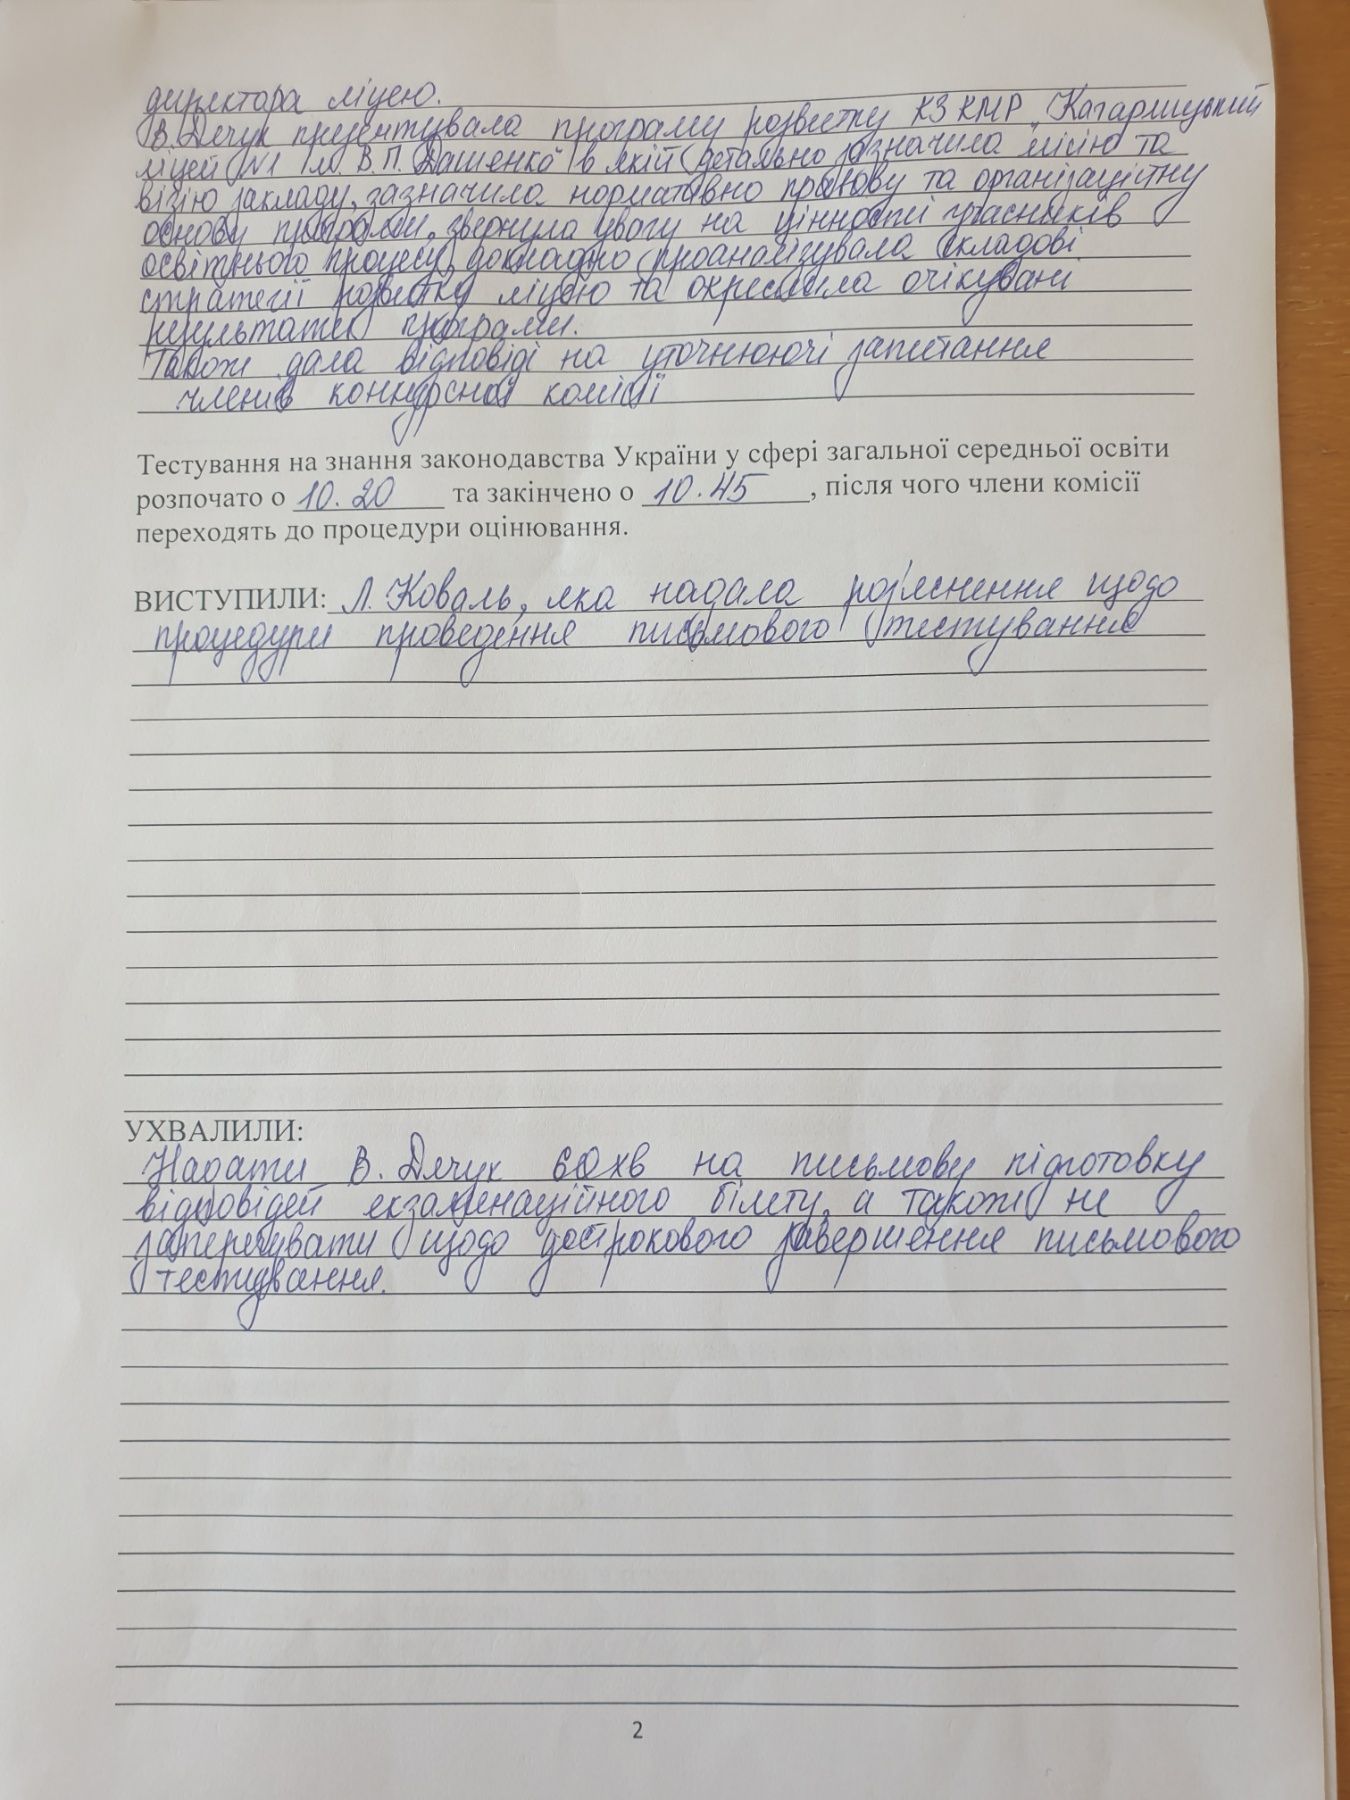 директора ліцею.
В. Дячук презентувала програму розвитку КЗ КМР „Кагарлицький
ліцей №1 ім. В.П. Дашенка" в якій детально зазначила місію та
візію закладу, зазначила нормативно правову та організаційну
основу програми, звернула увагу на цінності учасників
освітнього процесу, докладно проаналізувала складові
стратегії розвитку ліцею та окреслила очікувані
результати програми.
Також дала відповіді на уточнюючі запитання
членів конкурсної комісії
Тестування на знання законодавства України у сфері загальної середньої освіти
розпочато о 10.20 та закінчено о 10.45, після чого члени комісії
переходять до процедури оцінювання.
ВИСТУПИЛИ: Л. Коваль, яка надала роз'яснення щодо
процедури проведення письмового тестування
УХВАЛИЛИ:
Надати В. Дячук 60 хв на письмову підготовку
відповідей екзаменаційного білету, а також не
заперечувати щодо дострокового завершення письмового
тестування.
2